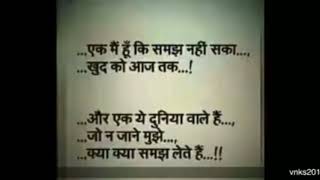 ...एक मैं हूँ कि समझ नहीं सका...,
...खुद को आज तक...!
...और एक ये दुनिया वाले हैं...,
...जो न जाने मुझे...,
...क्या क्या समझ लेते हैं...!!
vnks201